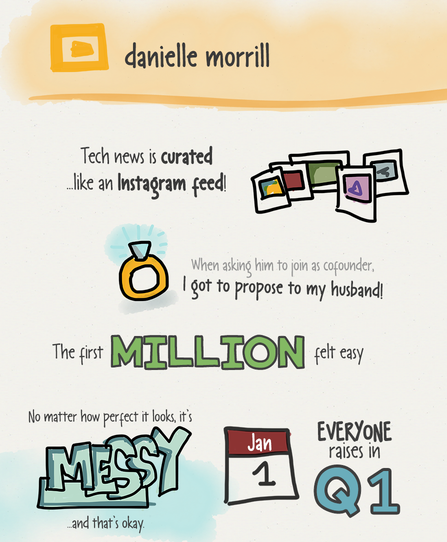 danielle morrill
Tech news is curated
...like an Instagram feed!
When asking him to join as cofounder,
I got to propose to my husband!
The first MILLION felt easy
No matter how perfect it looks, it's
MESSY
...and that's okay.
Jan
1
EVERYONE
raises in
Q1